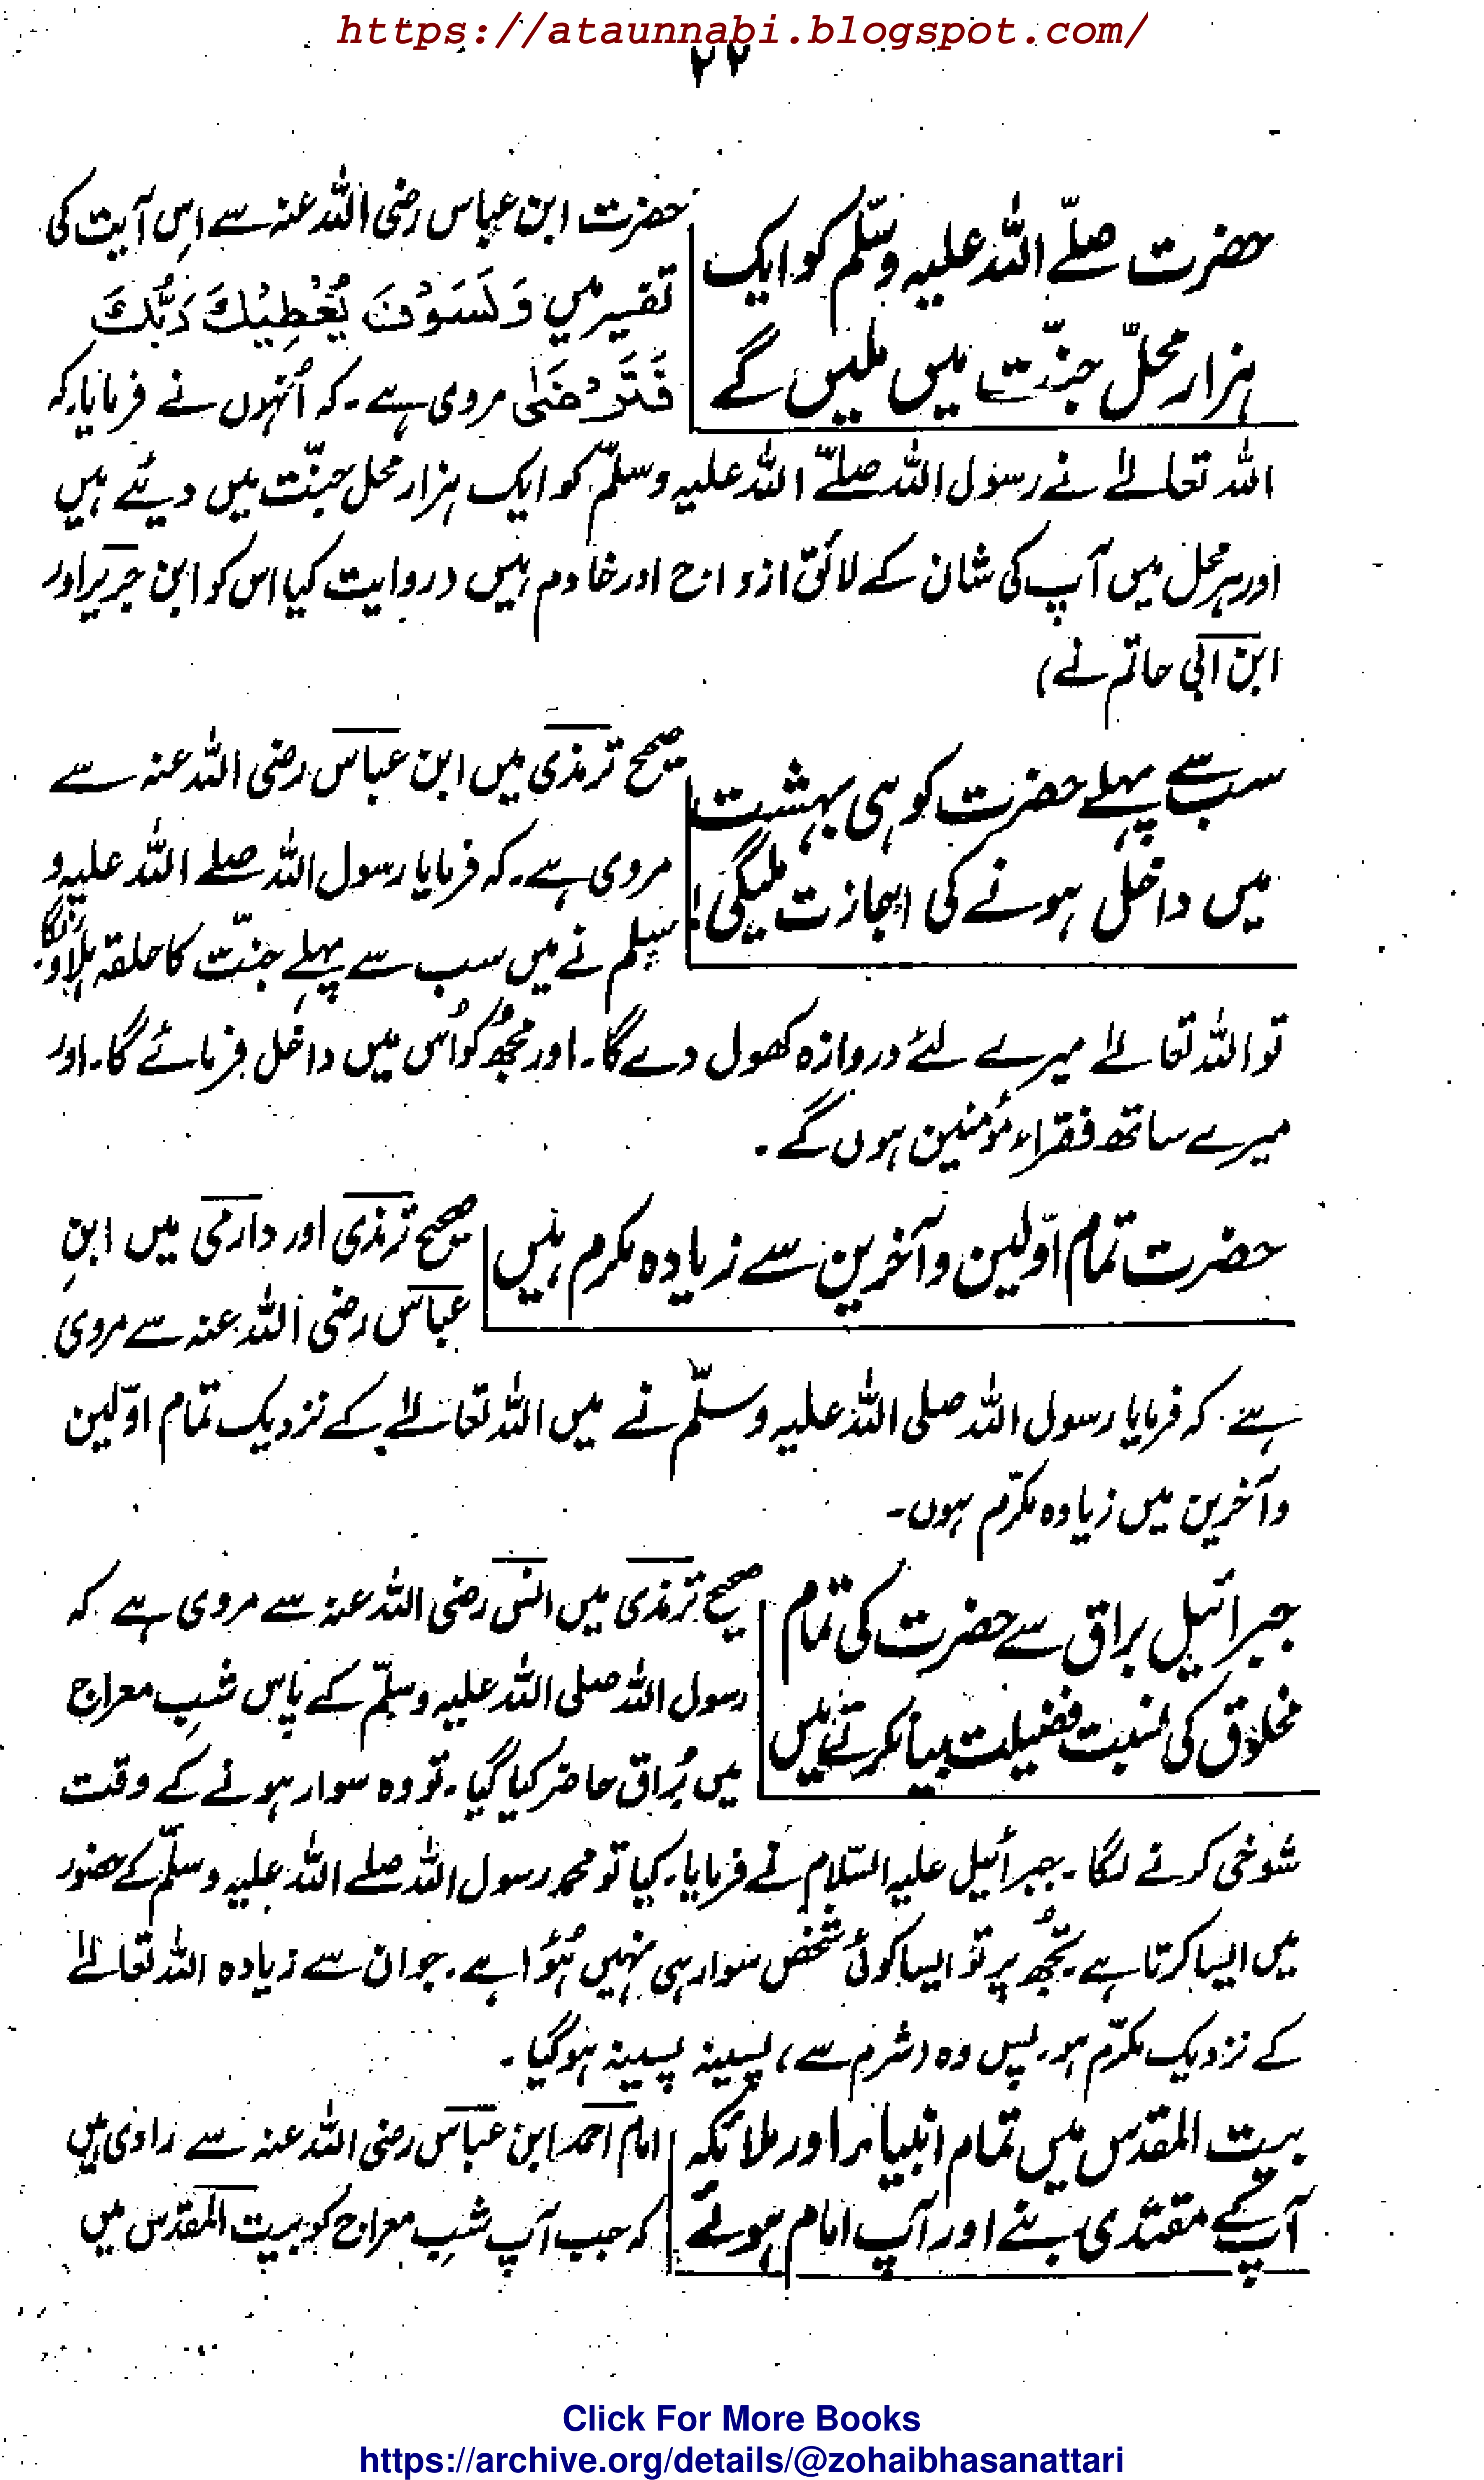 https://ataunnabi.blogspot.com/
۲۲
حضرت صلے اللہ علیہ وسلّم کو ایک
ہزار محلّ جنّت میں ملیں گے
حضرت ابن عباس رضی اللہ عنہ سے اس آیت کی
تفسیر میں وَلَسَوْفَ یُعْطِیْكَ رَبُّكَ
فَتَرْضٰی مروی ہے۔ کہ اُنہوں نے فرمایا۔ کہ
اللہ تعالےٰ نے رسول اللہ صلےّ اللہ علیہ وسلّم کو ایک ہزار محل جنّت میں دیئے ہیں
اور ہر محل میں آپ کی شان کے لائق ازواج اور خادم ہیں (روایت کیا اس کو ابن جریر اور
ابن ابی حاتم نے)
سب سے پہلے حضرت کو ہی بہشت
میں داخل ہونے کی اجازت ملیگی!
صحیح ترمذی میں ابن عباس رضی اللہ عنہ سے
مروی ہے۔ کہ فرمایا رسول اللہ صلے اللہ علیہ و
سلم نے میں سب سے پہلے جنّت کا حلقہ ہلاؤنگا
تو اللہ تعالےٰ میرے لئے دروازہ کھول دے گا۔ اور مجھُ کو اُس میں داخل فرمائے گا۔ اور
میرے ساتھ فقراء مؤمنین ہوں گے۔
حضرت تمام اوّلین و آخرین سے زیادہ مکرم ہیں
صحیح ترمذی اور دارمی میں ابنِ
عباس رضی اللہ عنہ سے مروی
ہے۔ کہ فرمایا رسول اللہ صلی اللہ علیہ وسلّم نے میں اللہ تعالےٰ کے نزدیک تمام اوّلین
و آخرین میں زیادہ مکرّم ہوں۔
جبرائیل براق سے حضرت کی تمام
مخلوق کی نسبت فضیلت بیان کرتے ہیں
صحیح ترمذی میں انس رضی اللہ عنہ سے مروی ہے کہ
رسول اللہ صلی اللہ علیہ وسلّم کے پاس شبِ معراج
میں بُراق حاضر کیا گیا۔ تو وہ سوار ہونے کے وقت
شوخی کرنے لگا۔ جبرائیل علیہ السّلام نے فرمایا۔ کیا تو محمد رسول اللہ صلے اللہ علیہ وسلّم کے حضور
میں ایسا کرتا ہے۔ تجھُ پر تو ایسا کوئی شخص سوار ہی نہیں ہُؤا ہے۔ جو ان سے زیادہ اللہ تعالےٰ
کے نزدیک مکرّم ہو۔ پس وہ (شرم سے) پسینہ پسینہ ہوگیا۔
بیت المقدس میں تمام انبیاء اور ملائکہ
آپ کے مقتدی بنے اور آپ امام ہوئے
امام احمد ابن عباس رضی اللہ عنہ سے راوی ہیں
کہ جب آپ شبِ معراج کو بیت المقدس میں
Click For More Books
https://archive.org/details/@zohaibhasanattari